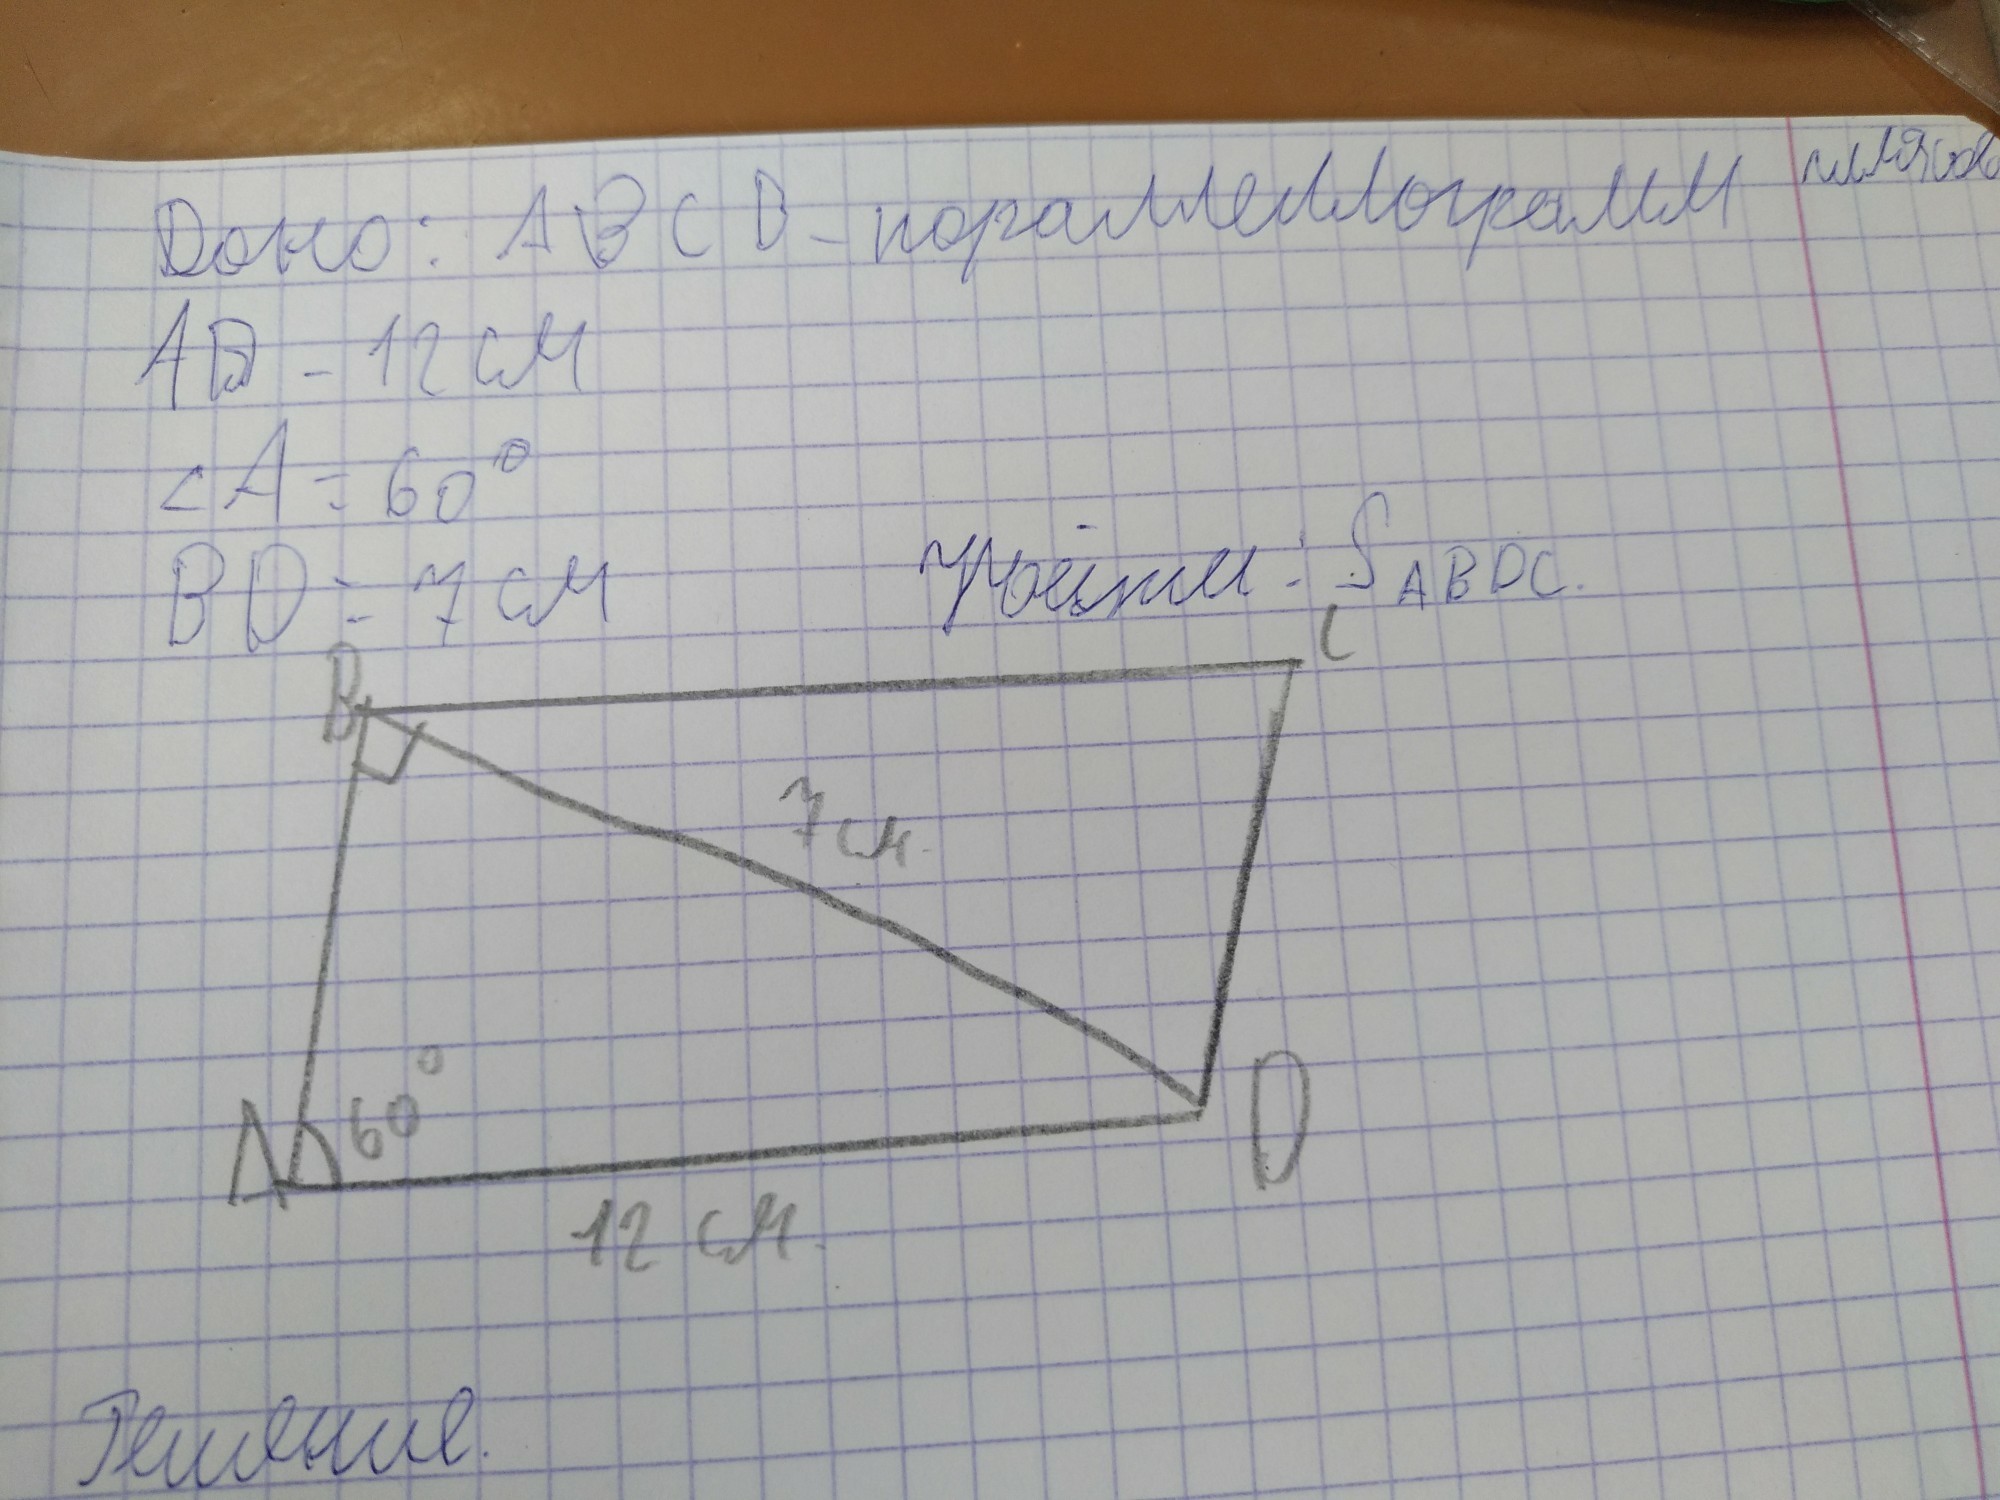 Доно: ABCD - пораллеллограмм
AD - 12 см
<A = 60°
BD = 7 см Найти: S ABDC.
B
C
7 см.
A
60°
D
12 см.
Решение.